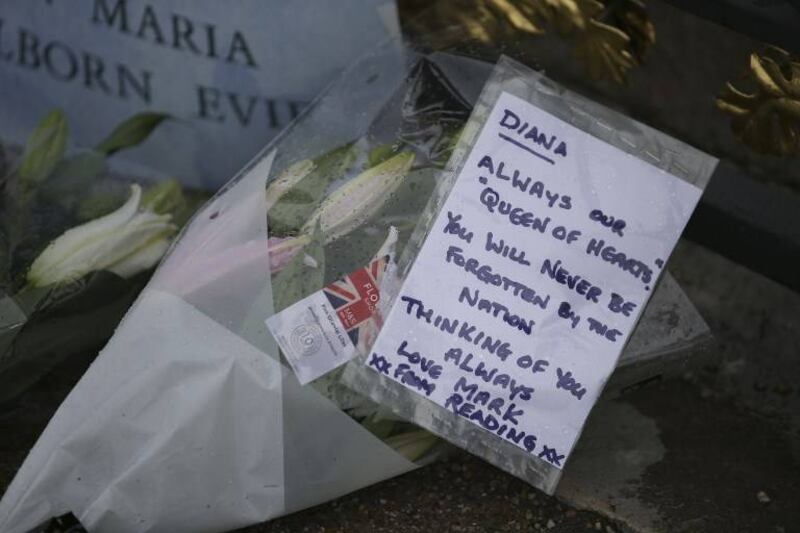 MARIA
LBORN EVIE
DIANA
ALWAYS OUR
"QUEEN OF HEARTS".
YOU WILL NEVER BE
FORGOTTEN BY THE
NATION
THINKING OF YOU
ALWAYS
LOVE MARK
xx FROM READING xx
FLO
M&S